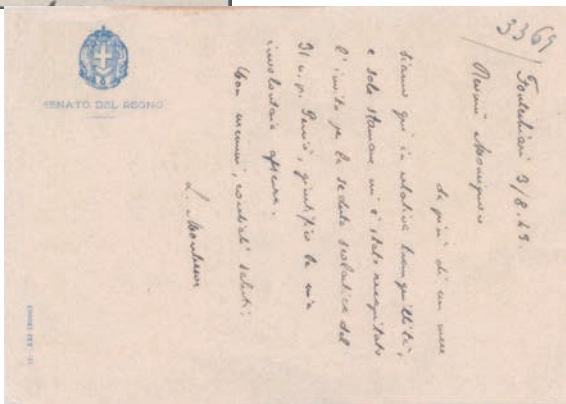 SENATO DEL REGNO
3369
3/8.43.
da più di un mese
siamo qui in relativa tranquillità;
e solo stamane mi è stato recapitato
l'invito per la seduta scolastica del
31 u. p. Perciò, giustifico la mia
involontaria assenza.
Con ossequi, cordiali saluti.